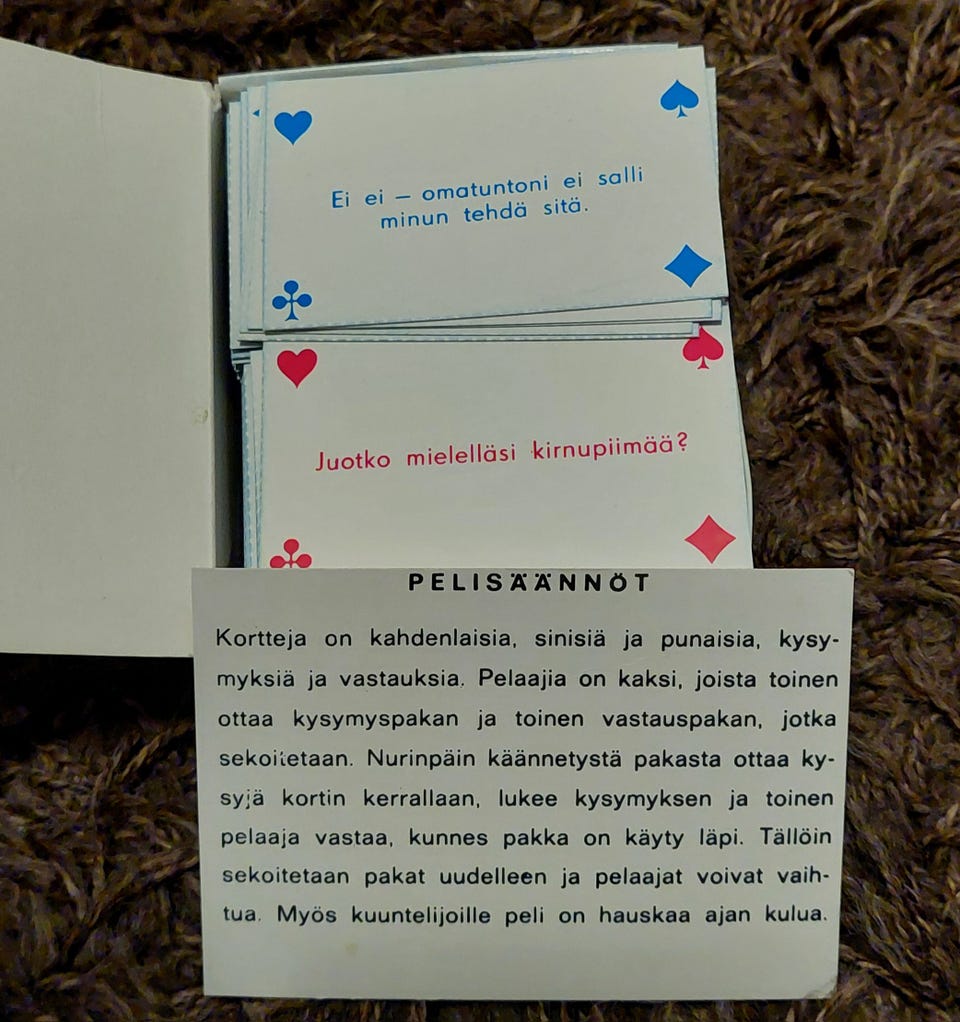 Ei ei – omatuntoni ei salli
minun tehdä sitä.
Juotko mielelläsi kirnupiimää?
PELISÄÄNNÖT
Kortteja on kahdenlaisia, sinisiä ja punaisia, kysy-
myksiä ja vastauksia. Pelaajia on kaksi, joista toinen
ottaa kysymyspakan ja toinen vastauspakan, jotka
sekoitetaan. Nurinpäin käännetystä pakasta ottaa ky-
syjä kortin kerrallaan, lukee kysymyksen ja toinen
pelaaja vastaa, kunnes pakka on käyty läpi. Tällöin
sekoitetaan pakat uudelleen ja pelaajat voivat vaih-
tua. Myös kuuntelijoille peli on hauskaa ajan kulua.